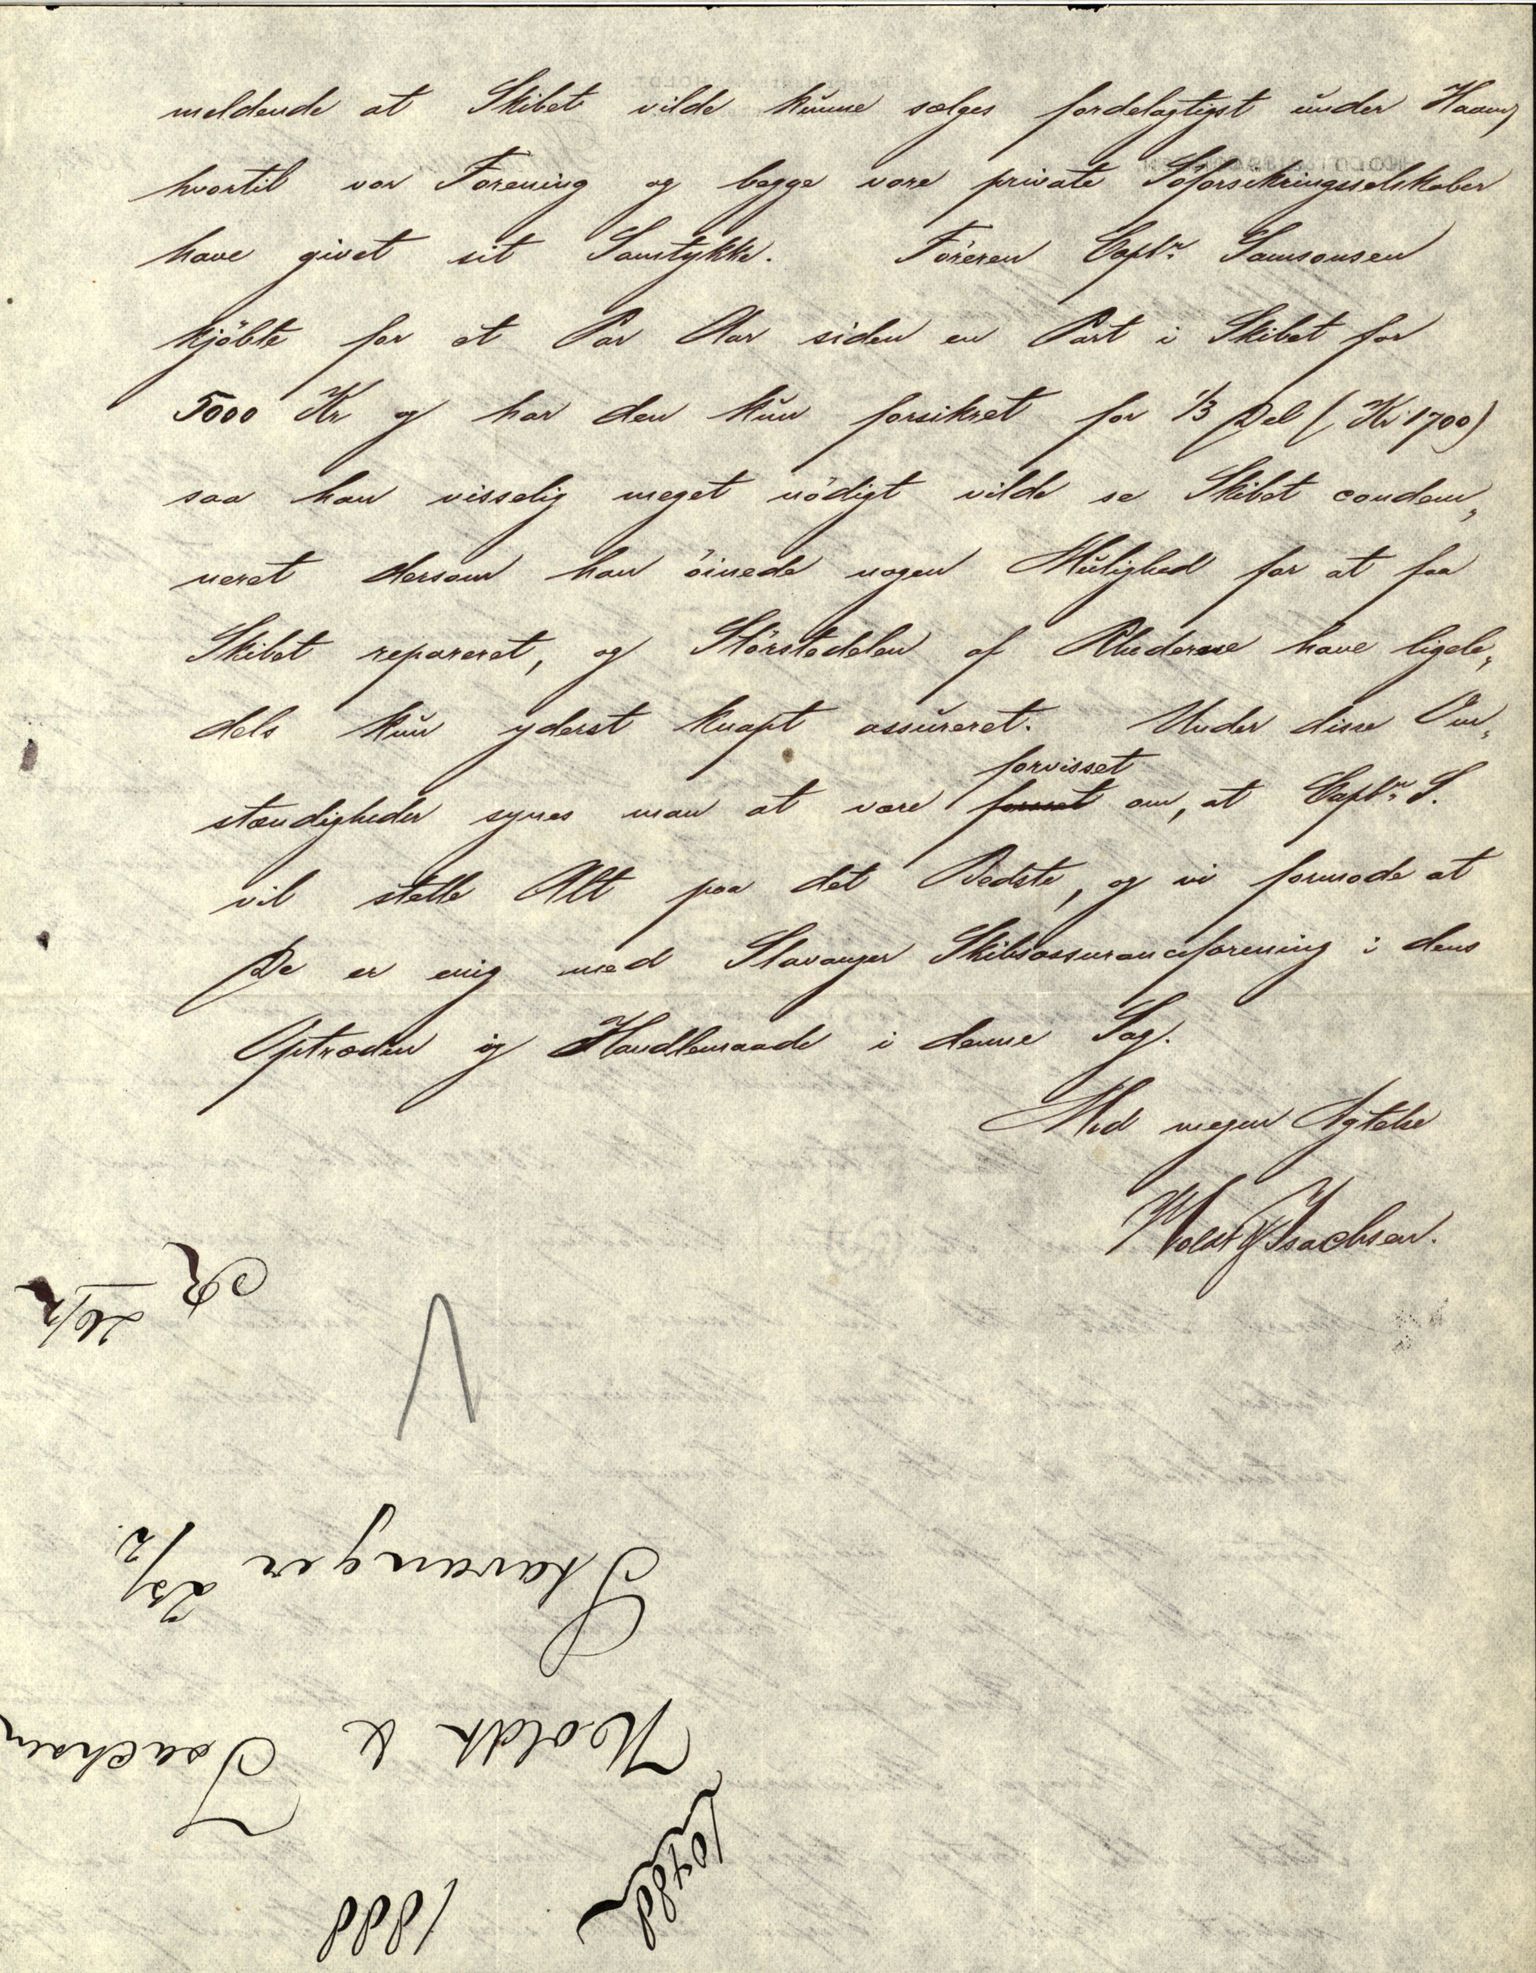 meldende at Skibet vilde kunne sælges fordelagtigst under Haanden
hvortil vor Forening og begge vore private Söforsikringsselskaber
have givet sit Samtykke. Föreren Captn. Samsonsen
kjöbte for et Par Aar siden en Part i Skibet for
5000 Kr og har den kun forsikret for 1/3 Del (Kr 1700)
saa han visselig meget nödigt vilde se Skibet condem„
neret dersom han öinede nogen Mulighed for at faa
Skibet repareret, og Störstedelen af Rhederne have ligele„
dels kun yderst knapt assureret. Under disse Om„
stændigheder synes man at være forvisset om, at Captn. S.
vil stelle Alt paa det Bedste, og vi formode at
De er enig med Stavanger Skibsassuranceforening i dens
Optræden og Handlemaade i denne Sag.
Med megen Agtelse
Holdt & Isachsen.
R 26/2
1888
Holdt & Isachsen
Stavanger 23/2